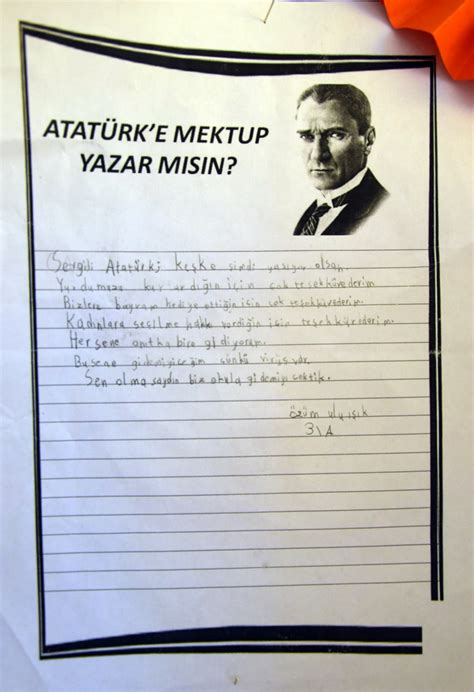 ATATÜRK'E MEKTUP
YAZAR MISIN?
Sevgili Atatürk; keşke şimdi yaşıyor olsan.
Yurdumuzu kurtardığın için çok teşekküre derim
Bizlere bayram hediye ettiğin için çok teşekkürederim.
Kadınlara seçilme hakkı verdiğin için teşekkürederim.
Her sene anıtka bire gidiyorum.
Busene gidemiyiceğim çünkü virüs var.
Sen olma saydın biz okula gidemiye cektik.
özüm uluışık
3\A